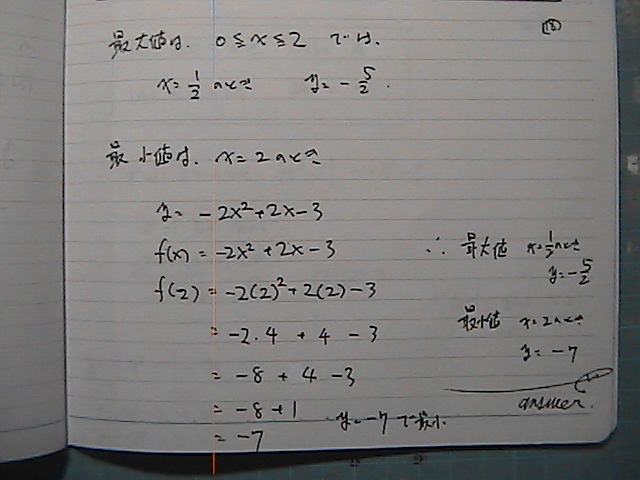 ⑱
最大値は、 0≦x≦2 では、
x=1/2 のとき y=-5/2.
最小値は、 x=2のとき
y= -2x²+2x-3
f(x) = -2x²+2x-3
f(2) = -2(2)²+2(2)-3
= -2·4 + 4 - 3
= -8 + 4 - 3
= -8+1
= -7 y=-7 で最小.
∴ 最大値 x=1/2のとき
y=-5/2
最小値 x=2のとき
y= -7
answer.